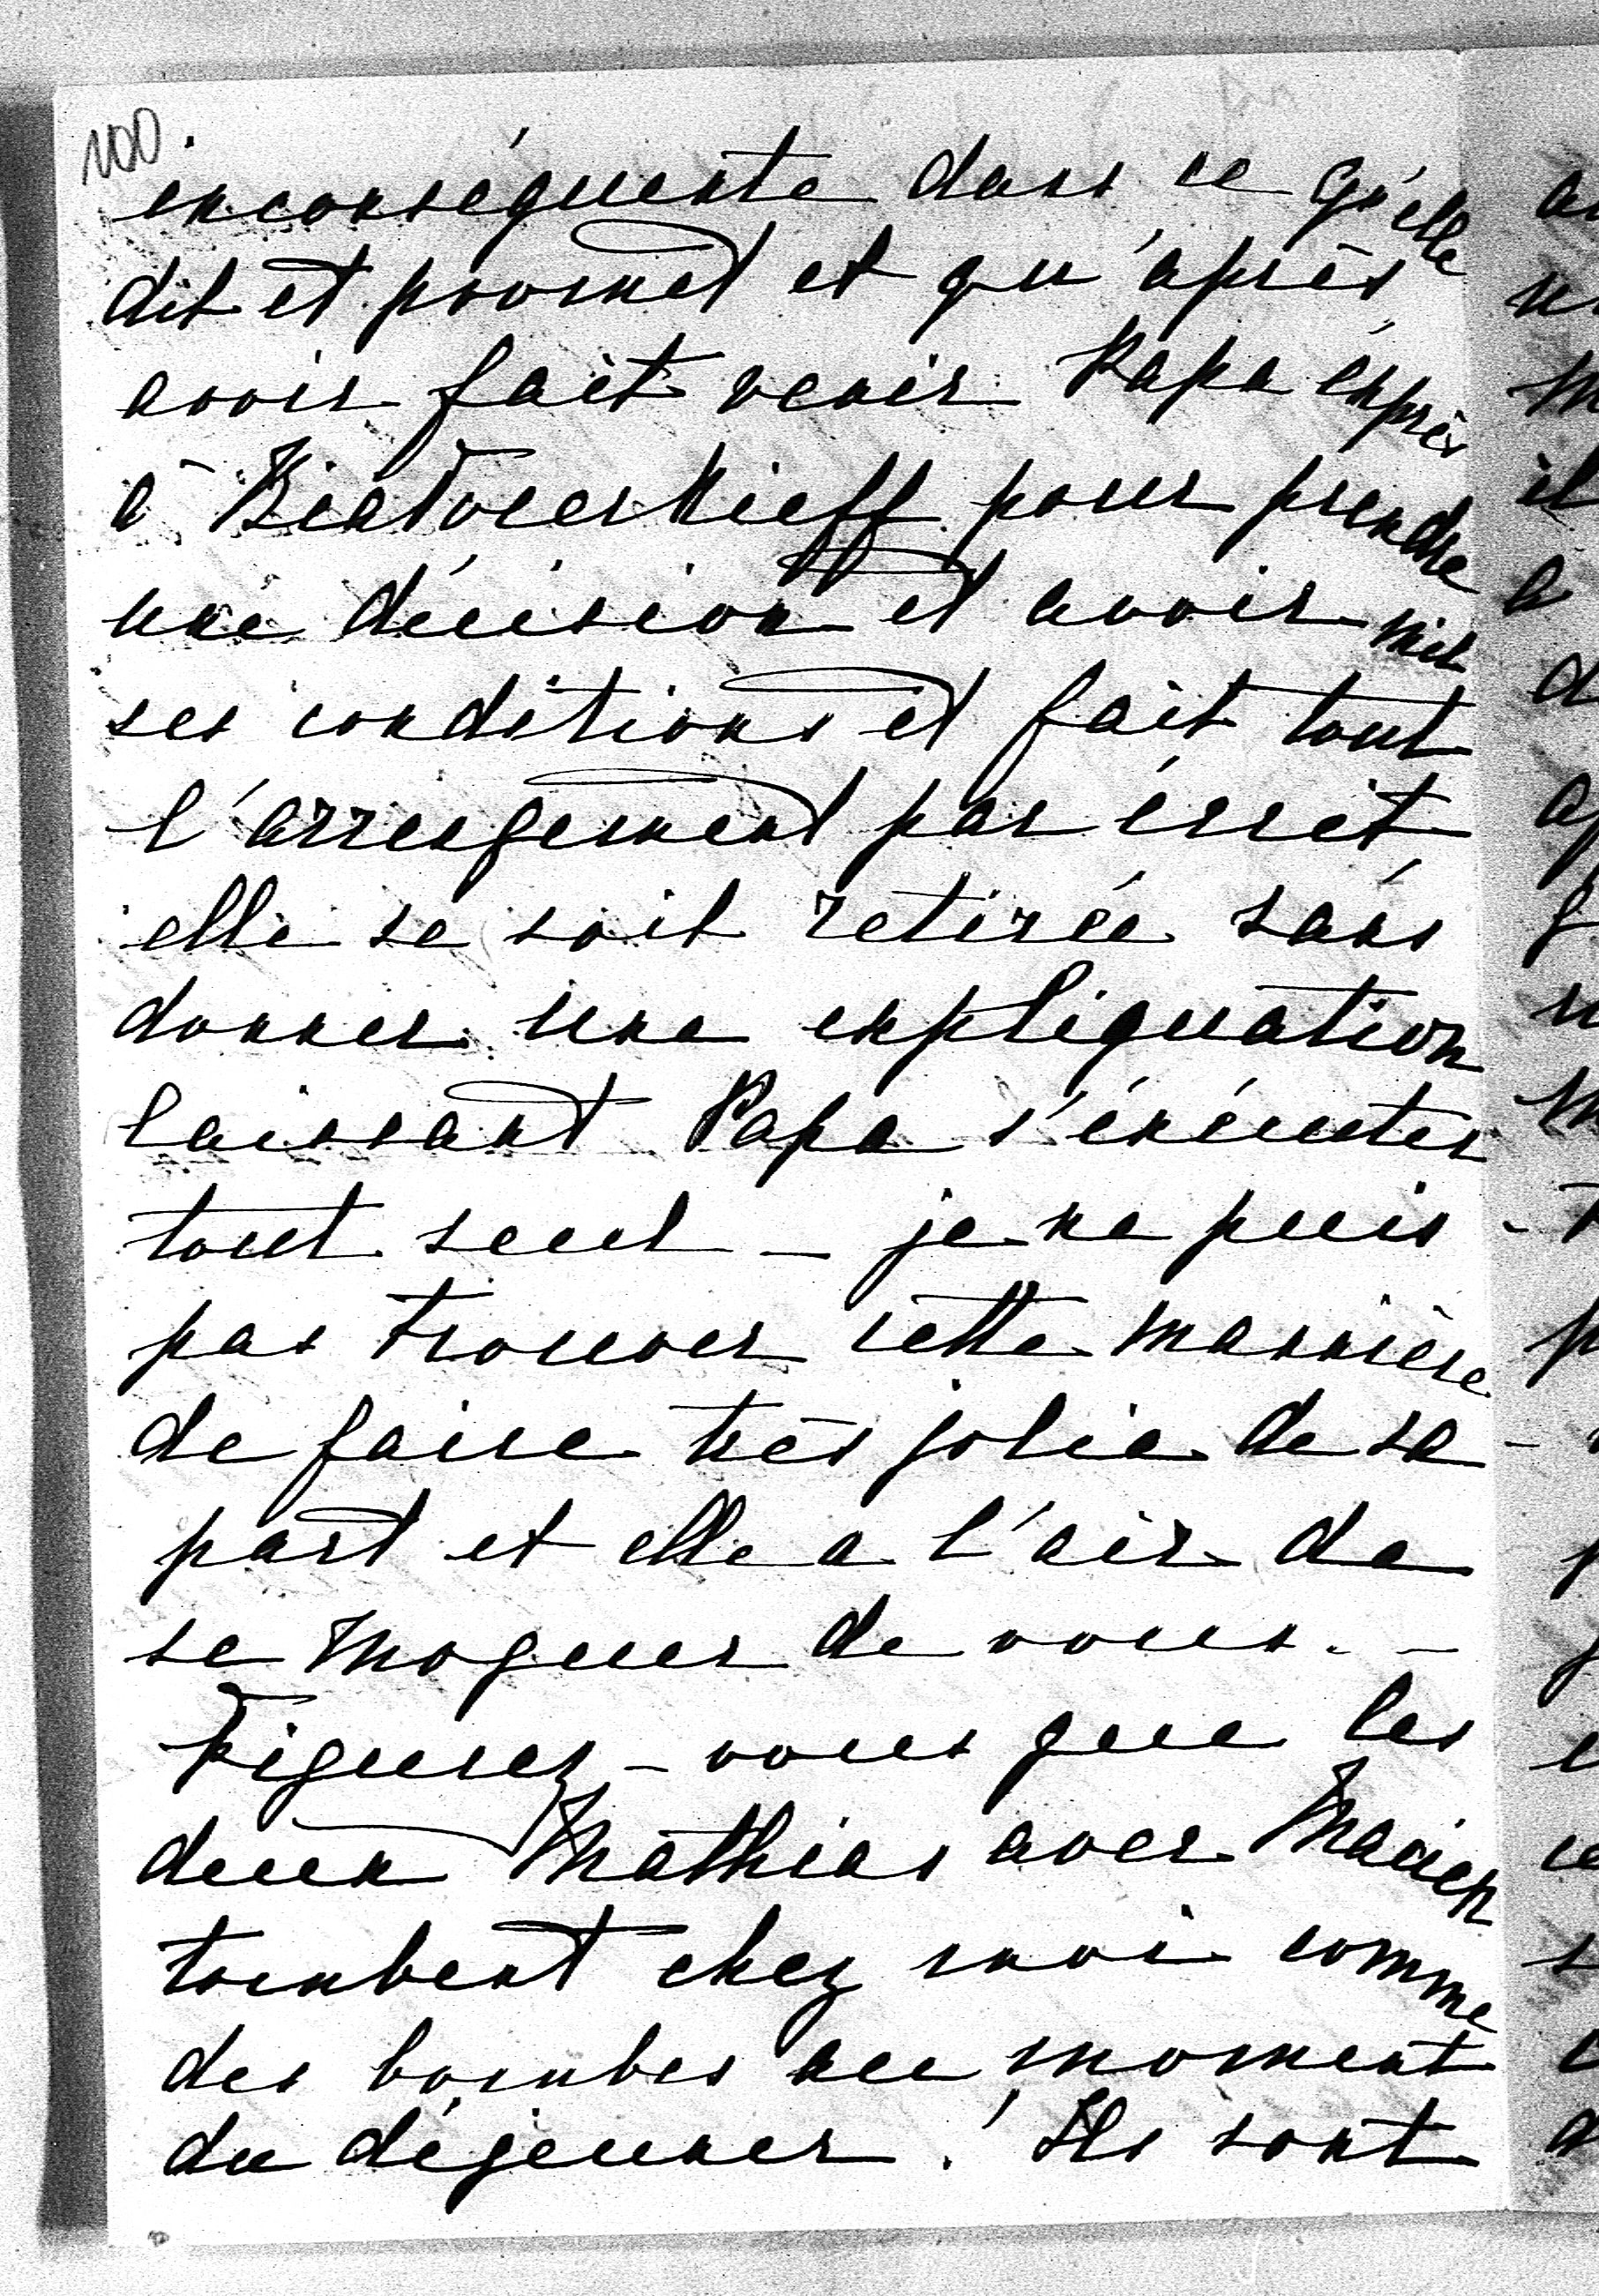 100.
inconséquente dans ce qu'elle
dit et promet et qu'après
avoir fait venir Papa exprès
à Biatocerkieff pour prendre
une décision et avoir mit
ses conditions et fait tout
l'arrengement par écrit,
elle se soit retirée sans
donner une expliquation
laissant Papa s'éxécuter
tout seul – je ne puis
pas trouver cette mannière
de faire très jolie de sa
part et elle a l'air de
se moquer de vous. –
Figurez-vous que les
deux Mathias avec Maciej
tombent chez moi comme
des bombes au moment
du déjeuner! Ils sont